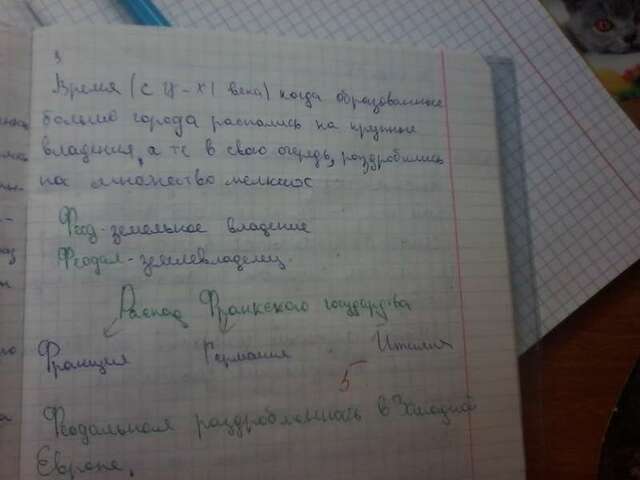 Время (с IX - XI века) когда образованные
большие города распались на крупные
владения, а те в свою очередь, раздробились
на множество мелких
Феод - земельное владение
Феодал - землевладелец.
Распад Франкского государства
Франция Германия Италия
5
Феодальная раздробленность в Западной
Европе,